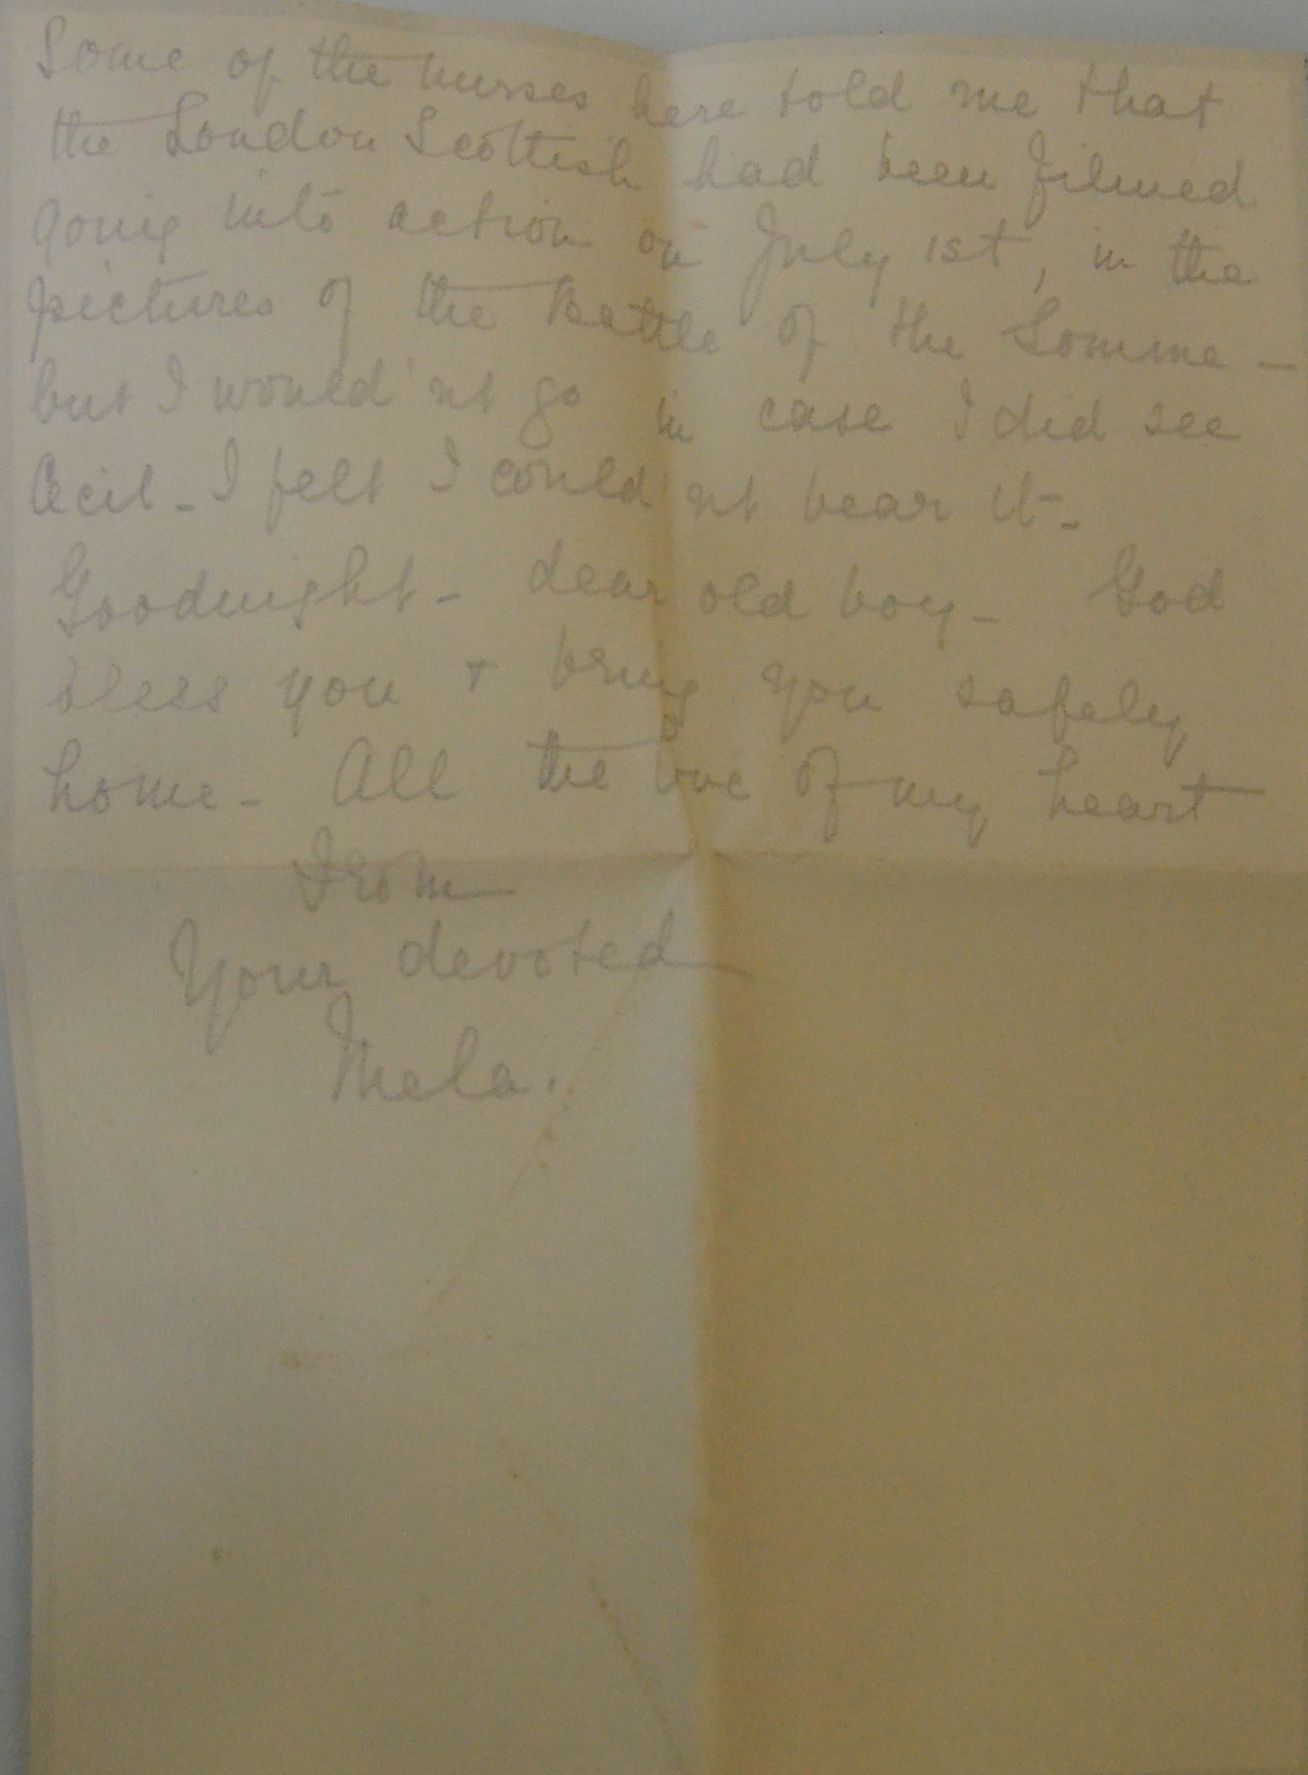 Some of the nurses here told me that
the London Scottish had been filmed
going into action on July 1st, in the
pictures of the Battle of the Somme –
but I would'nt go in case I did see
Cecil – I felt I could'nt bear it –
Goodnight – dear old boy – God
bless you + bring you safely
home – All the love of my heart
From
Your devoted
Mela.